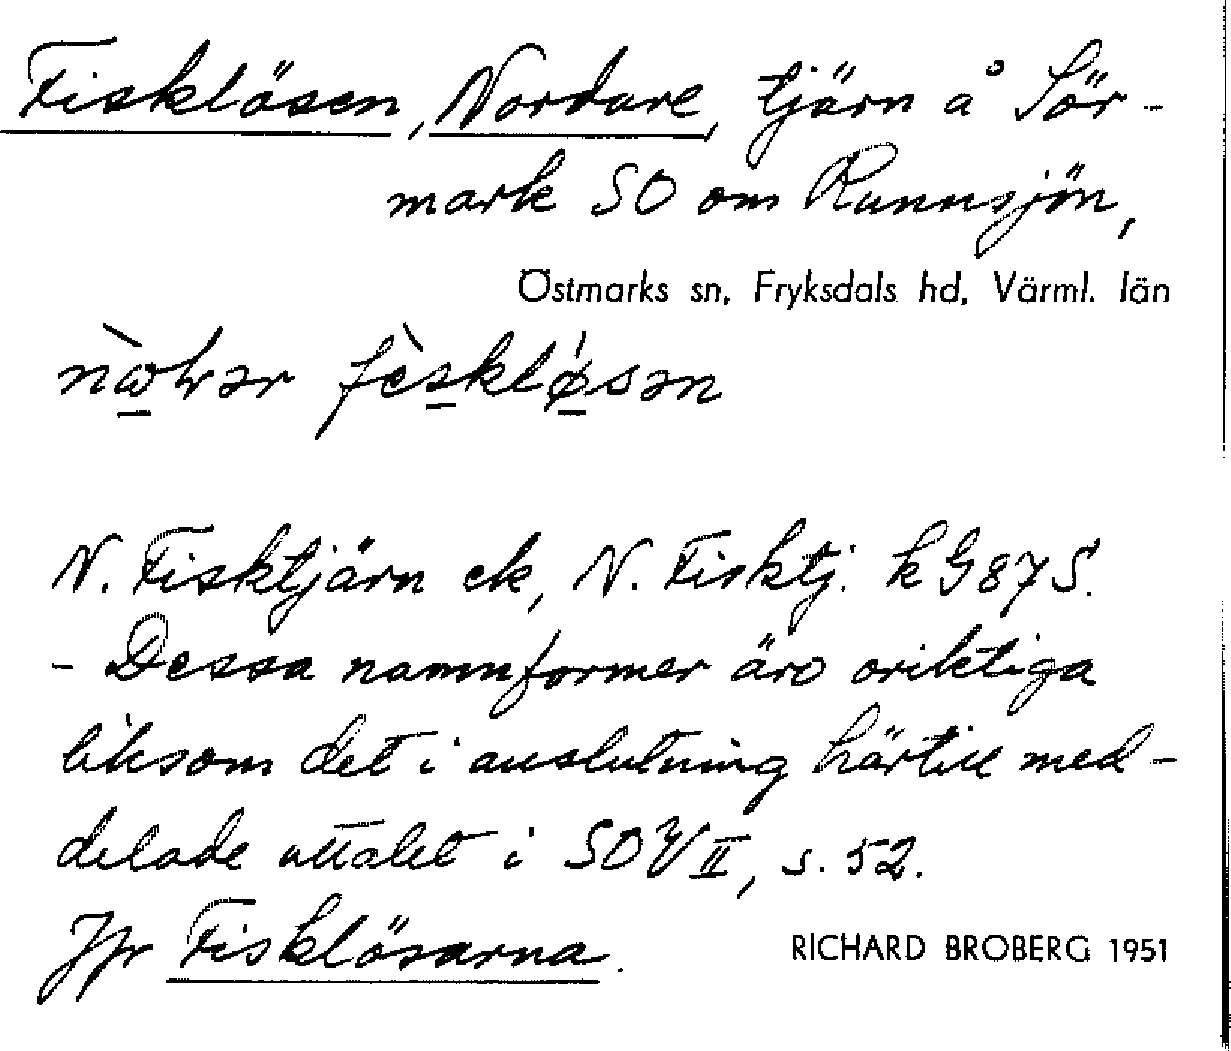 Fisklösen, Nordare, tjärn å Sör-
mark SO om Runnsjön,
Östmarks sn, Fryksdals hd, Värml. län
fèsklǿsən
N. Fisktjärn ek, N. Fisktj. kG87S.
- Dessa namnformer äro oriktiga
liksom det i anslutning härtill med-
delade uttalet i SOV II, s. 52.
Jfr Fisklösarna.
RICHARD BROBERG 1951